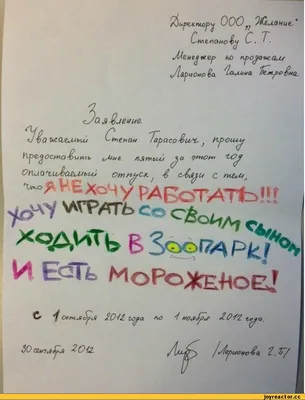 Директору ООО „Желание"
Степанову С. Т.
Менеджер по продажам
Ларионова Галина Петровна
Заявление
Уважаемый Степан Тарасович, прошу
предоставить мне пятый за этот год
оплачиваемый отпуск, в связи с тем,
что Я НЕ ХОЧУ РАБОТАТЬ!!!
ХОЧУ ИГРАТЬ СО СВОИМ СЫНОМ
ХОДИТЬ В ЗООПАРК!
И ЕСТЬ МОРОЖЕНОЕ!
с 1 октября 2012 года по 1 ноября 2012 года.
30 сентября 2012 /Ларионова Г. П/
joyreactor.cc